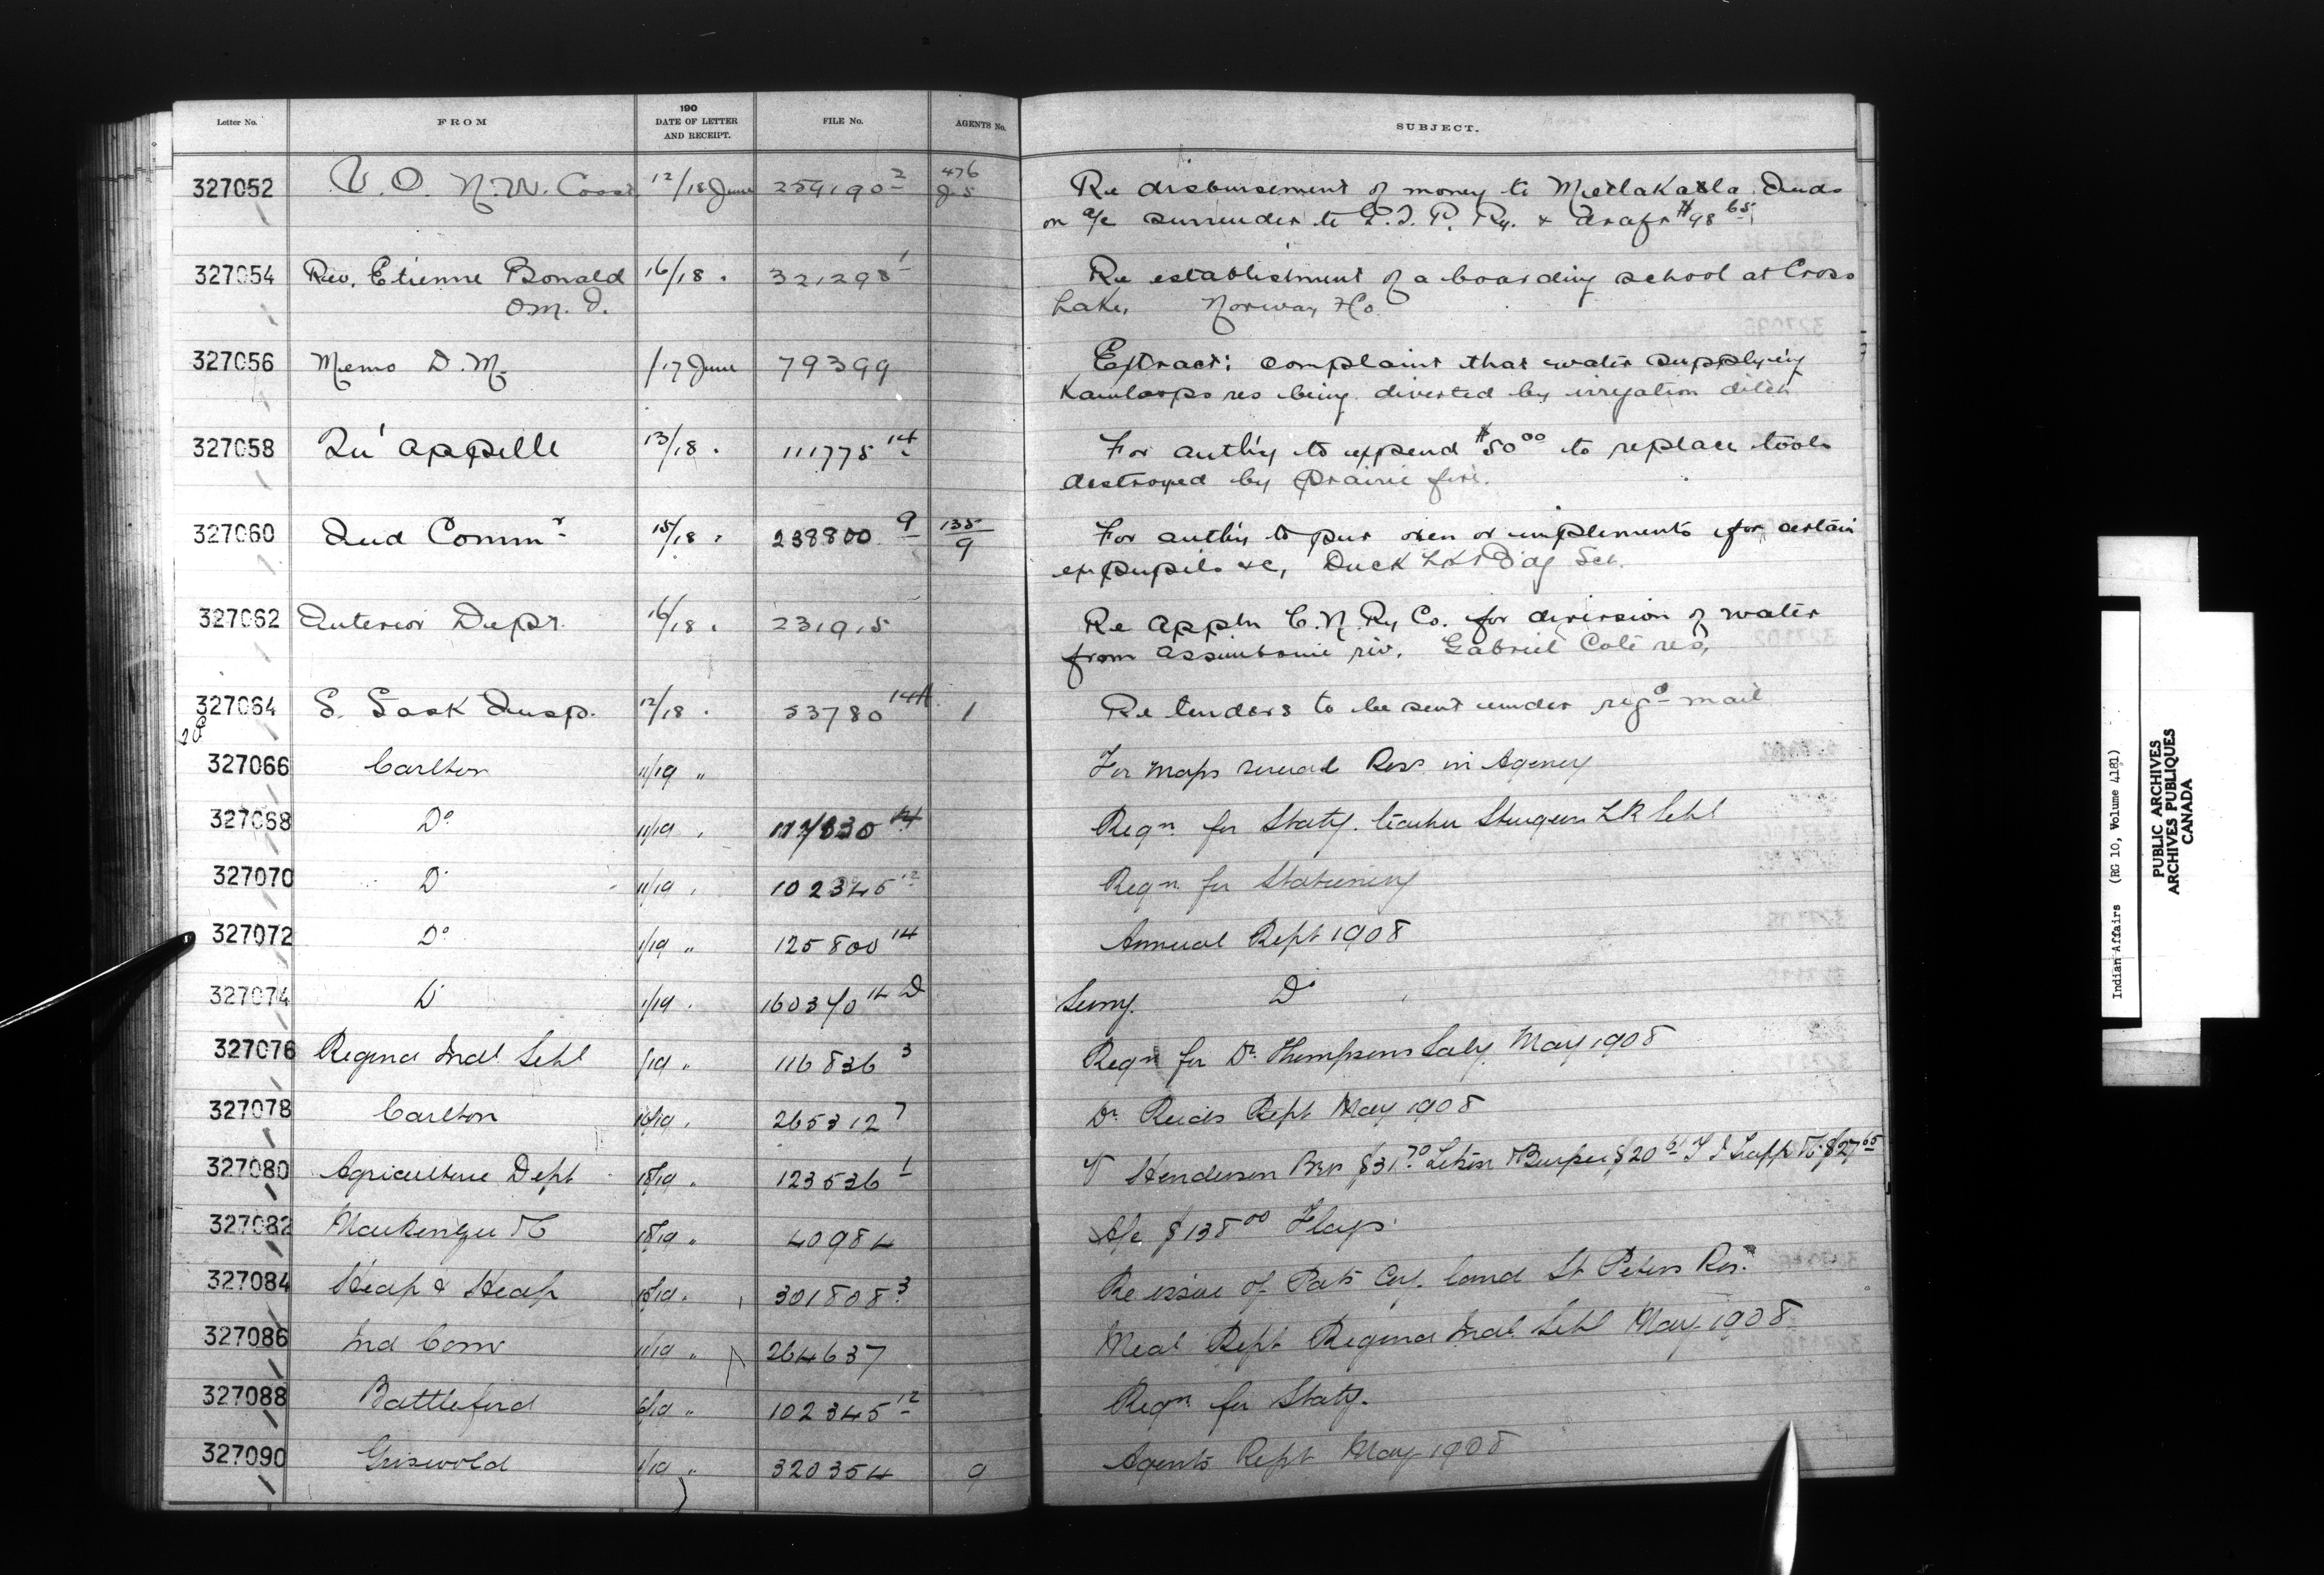 Letter No. FROM 190 DATE OF LETTER AND RECEIPT. FILE No. AGENTS No. SUBJECT.
327052 V. O. N.W. Coast 12/18 June 259190 2 476 J5 Re disbursement of money to Metlakatla Inds
on a/c surrender to G.T.P. Ry. & draft $98 65
327054 Rev. Etienne Bonald 16/18 " 321298 1 Re establishment of a boarding school at Cross
O.M.I. Lake, Norway Ho
327056 Memo D.M. /17 June 79399 Extract: complaint that water supplying
Kamloops res being diverted by irrigation ditch
327058 Qu'appelle 13/18 " 111775 14 For auth'y to expend $50 00 to replace tools
destroyed by prairie fire.
327060 Ind Commr 15/18 " 238800 9 135/9 For auth'y to pur oxen or implements for certain
ex pupils &c, Duck Lk Bdg Sch.
327062 Interior Dept. 16/18 " 231915 Re appln C.N. Ry Co. for diversion of water
from assiniboine riv. Gabriel Coté res,
327064 S. Sask Insp. 12/18 " 53780 14A 1 Re tenders to be sent under regd mail
327066 Carlton 11/19 " For maps several Ress in Agency
327068 Do 11/19 " 14 Reqn for Staty. teacher Sturgeon Lk Schl
327070 Do 11/19 " 102345 12 Reqn for Stationery
327072 Do 1/19 " 125800 14 Annual Rept 1908
327074 Do 1/19 " 160370 14 D Do
327076 Regina Indl Schl /19 " 116836 3 Reqn for Dr Thompsons Saly May 1908
327078 Carlton 10/19 " 265312 7 Dr Reids Rept May 1908
327080 Agriculture Dept 18/19 " 123536 1 V Henderson Bros $31 70 Burpee $20 61 T J Trapp & Co $27 65
327082 Mackenzie 18/19 " 40984 A/c $138 00 Flags
327084 Heap & Heap 15/19 " 301808 3 Re issue of Pats Cov. land St Peters Res.
327086 Ind Comr 11/19 " 264637 Meal Rept Regina Indl Schl May 1908
327088 Battleford 6/19 " 102345 12 Reqn for Staty.
327090 Griswold 1/19 " 320354 9 Agents Rept May 1908
Indian Affairs (RG 10, Volume 4181)
PUBLIC ARCHIVES
ARCHIVES PUBLIQUES
CANADA